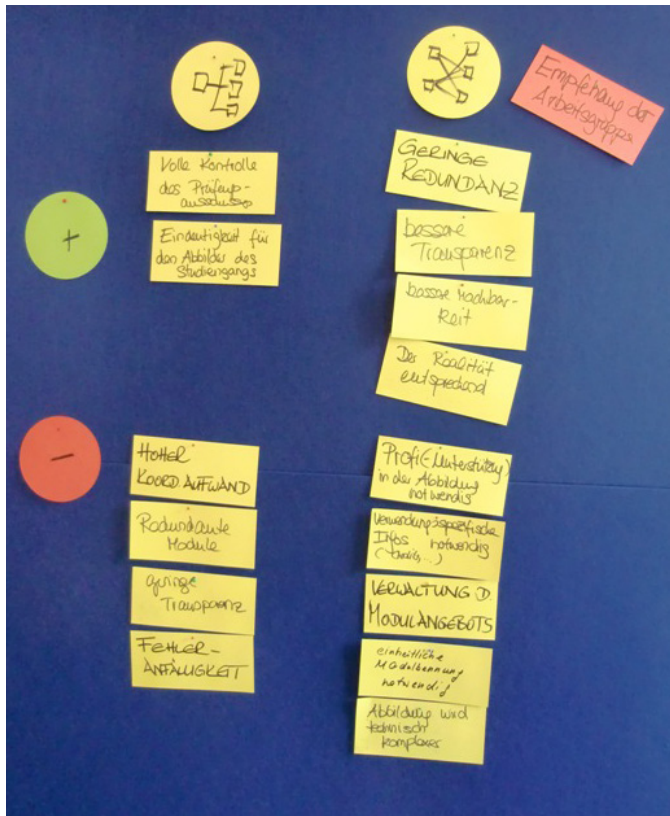 Empfehlung der
Arbeitsgruppe
+
Volle Kontrolle
des Prüfungs-
ausschusses
Eindeutigkeit für
den Abbilder des
Studiengangs
GERINGE
REDUNDANZ
bessere
Transparenz
bessere Machbar-
keit
Der Realität
entsprechend
-
HOHER
KOORD AUFWAND
Redundante
Module
geringe
Transparenz
FEHLER-
ANFÄLLIGKEIT
Profi(-Unterstützung)
in der Abbildung
notwendig
Verwendungsspezifische
Infos notwendig
VERWALTUNG D.
MODULANGEBOTS
einheitliche
Modulbennung
notwendig
Abbildung wird
technisch
komplexer